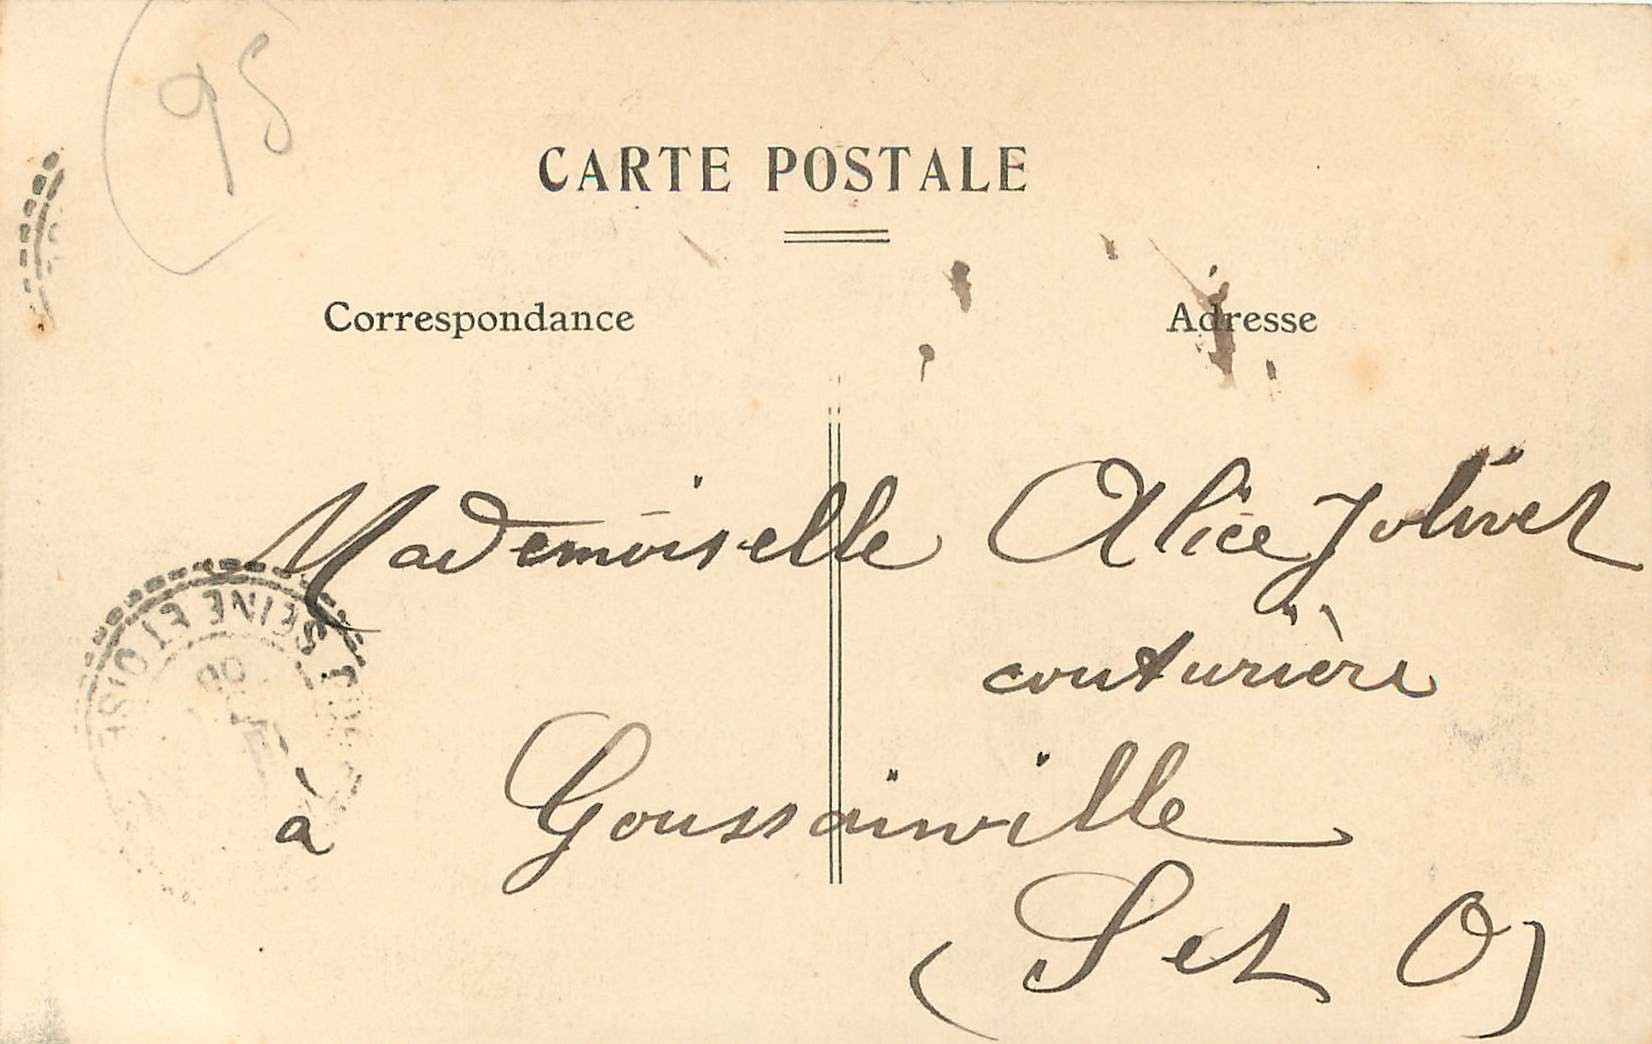 95
CARTE POSTALE
Correspondance
Adresse
Mademoiselle Alice Jolivet
couturière
à Goussainville
(S et O)
SEINE ET OISE